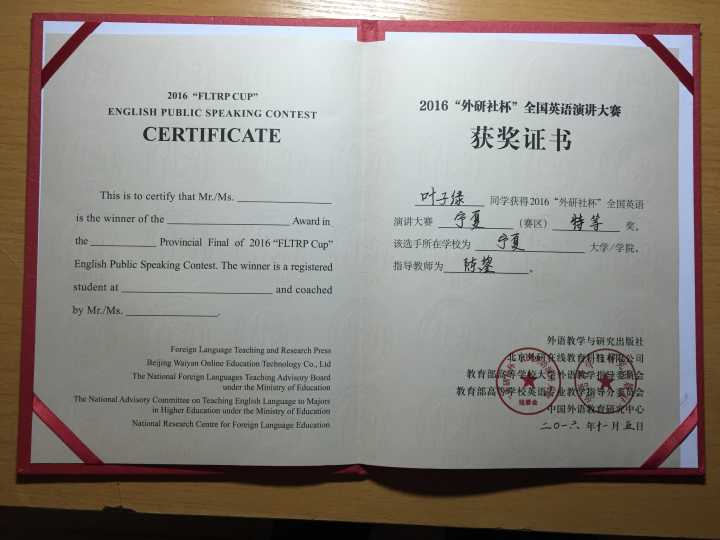 2016 “FLTRP CUP”
ENGLISH PUBLIC SPEAKING CONTEST
CERTIFICATE
This is to certify that Mr./Ms.
is the winner of the Award in
the Provincial Final of 2016 “FLTRP Cup”
English Public Speaking Contest. The winner is a registered
student at and coached
by Mr./Ms. .
Foreign Language Teaching and Research Press
Beijing Waiyan Online Education Technology Co., Ltd
The National Foreign Languages Teaching Advisory Board
under the Ministry of Education
The National Advisory Committee on Teaching English Language to Majors
in Higher Education under the Ministry of Education
National Research Centre for Foreign Language Education
2016“外研社杯”全国英语演讲大赛
获奖证书
叶子绿 同学获得2016“外研社杯”全国英语
演讲大赛 宁夏 （赛区） 特等 奖。
该选手所在学校为 宁夏 大学/学院，
指导教师为 陈鋆 。
外语教学与研究出版社
北京外研在线教育科技有限公司
教育部高等学校大学外语教学指导委员会
教育部高等学校英语专业教学指导分委员会
中国外语教育研究中心
组委会
二〇一六 年十一月五日